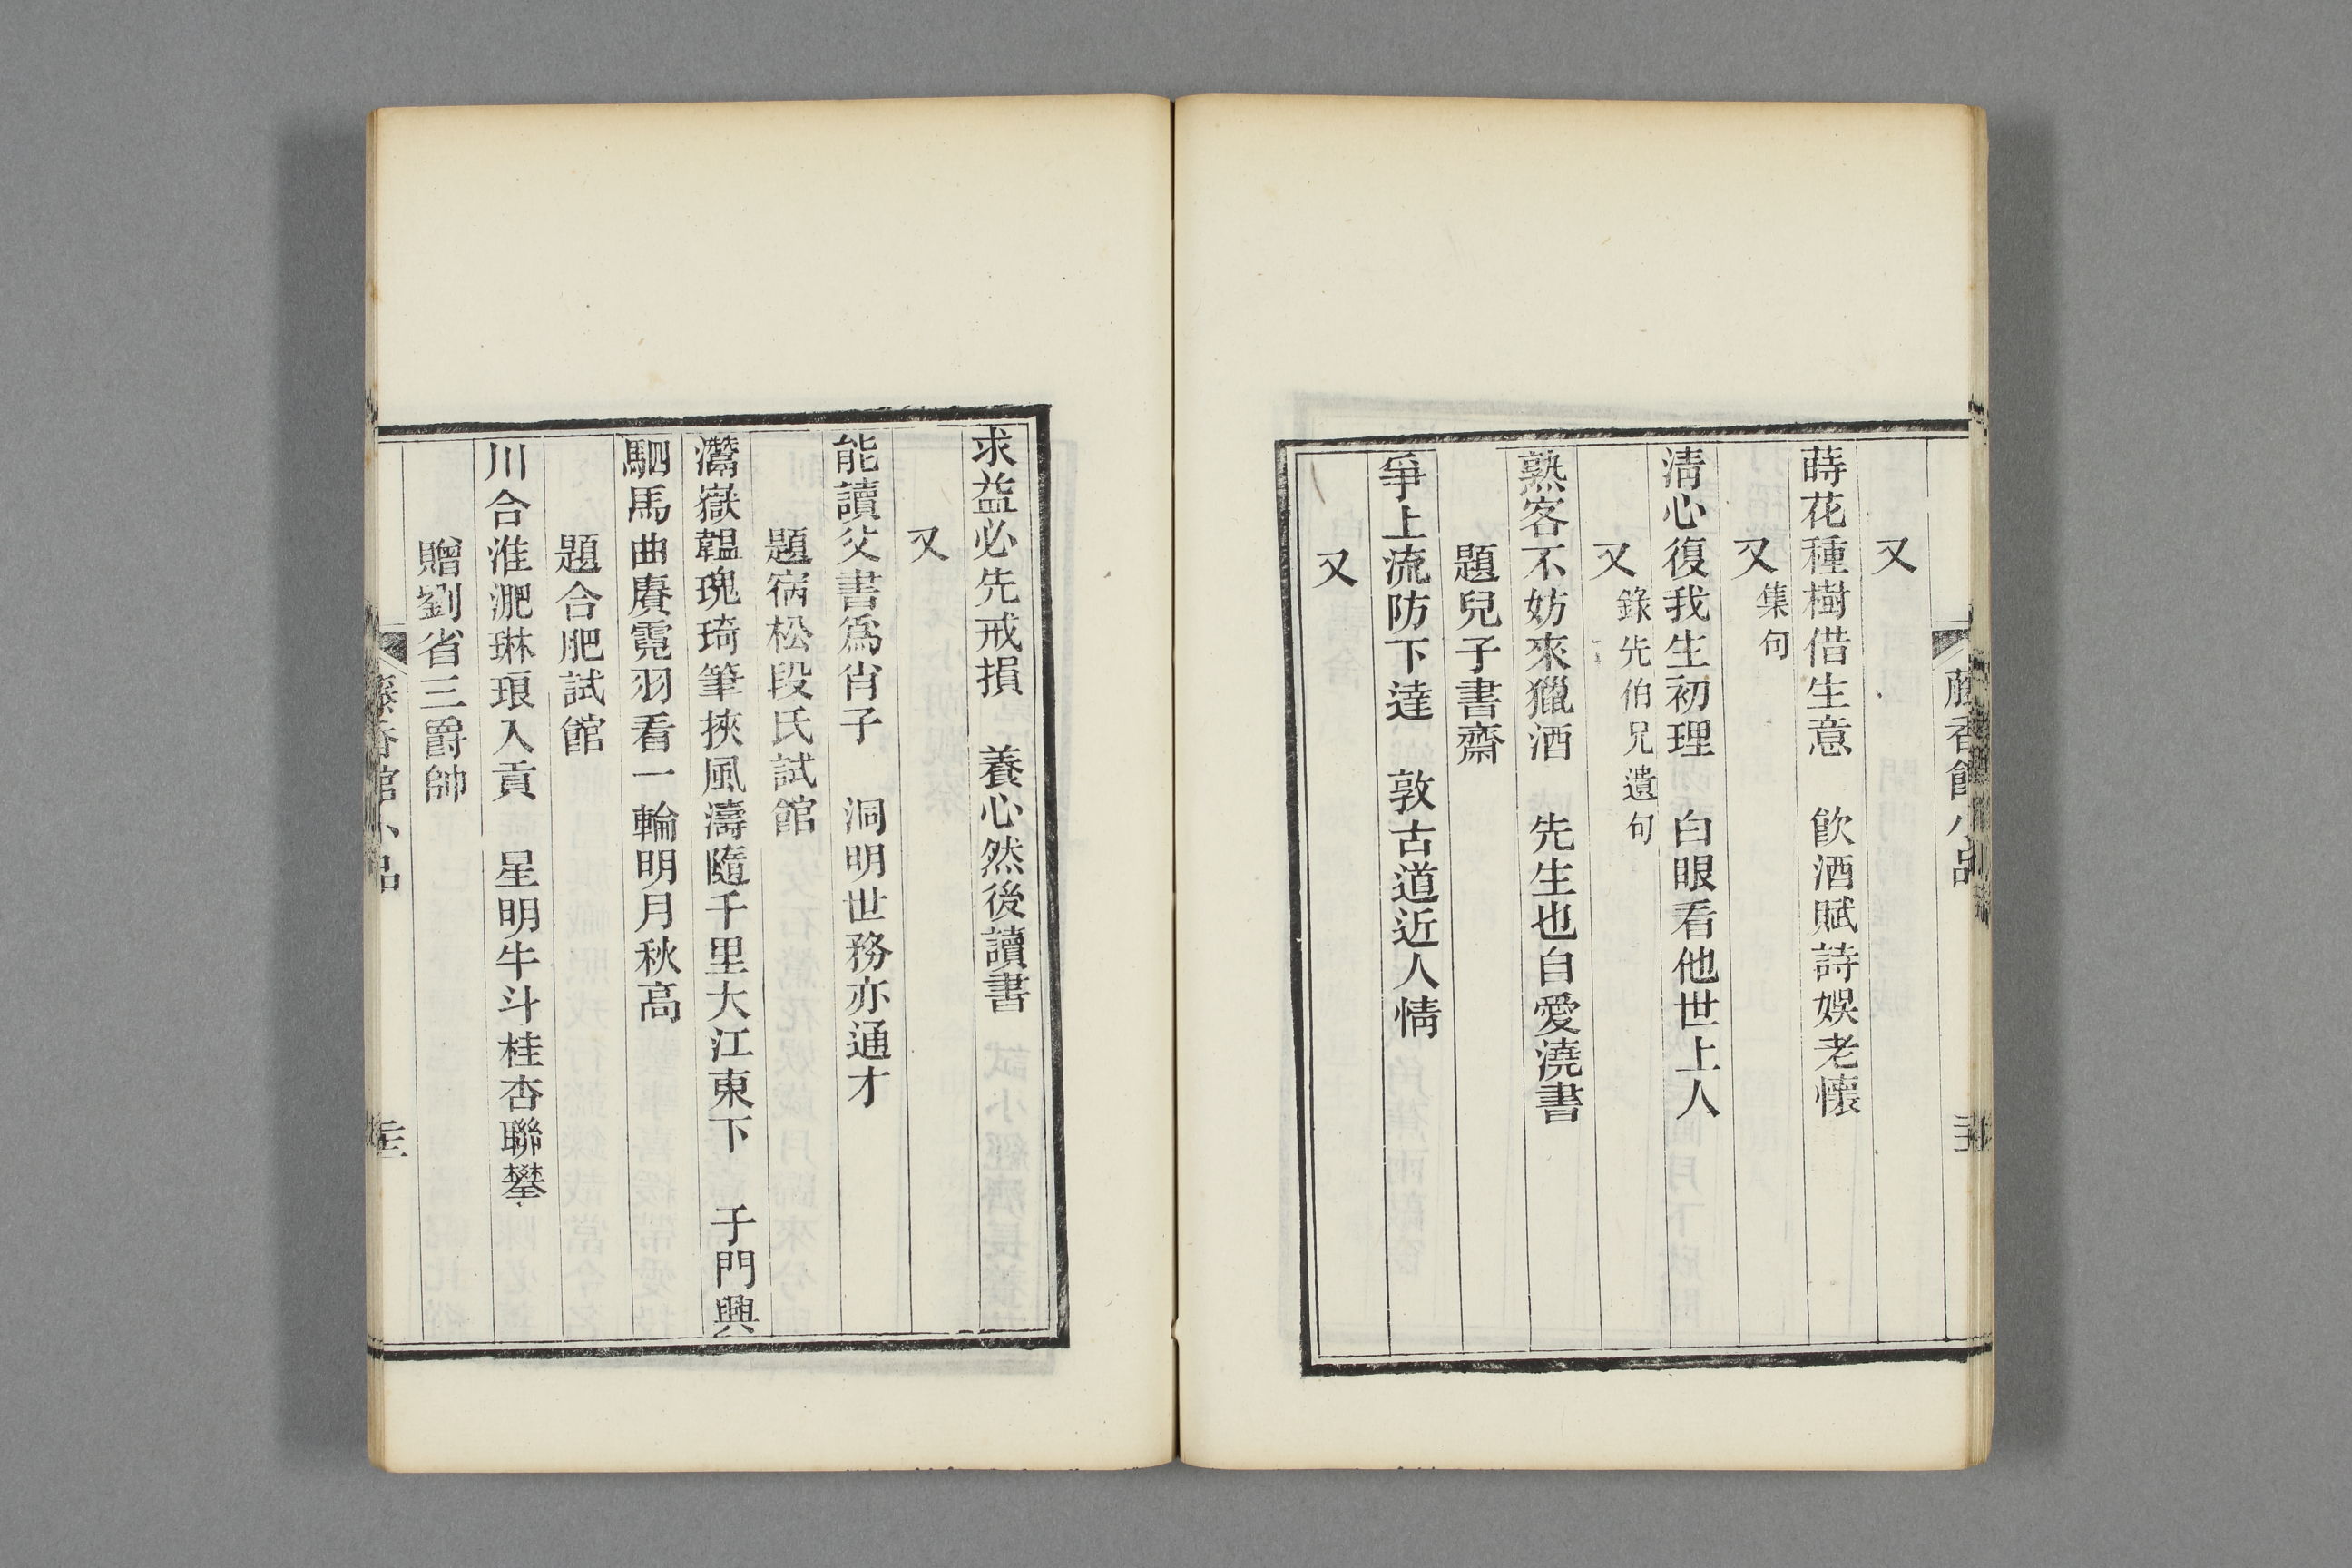 藤香館小品
又
蒔花種樹借生意　飲酒賦詩娛老懷
又集句
清心復我生初理　白眼看他世上人
又錄先伯兄遺句
熟客不妨來獵酒　先生也自愛澆書
題兒子書齋
爭上流防下達　敦古道近人情
又
求益必先戒損　養心然後讀書
又
能讀父書爲肖子　洞明世務亦通才
題宿松段氏試館
灊嶽韞瑰琦筆挾風濤隨千里大江東下　子門興
駟馬曲賡霓羽看一輪明月秋高
題合肥試館
川合淮淝琳琅入貢　星明牛斗桂杏聯攀
贈劉省三爵帥
藤香館小品